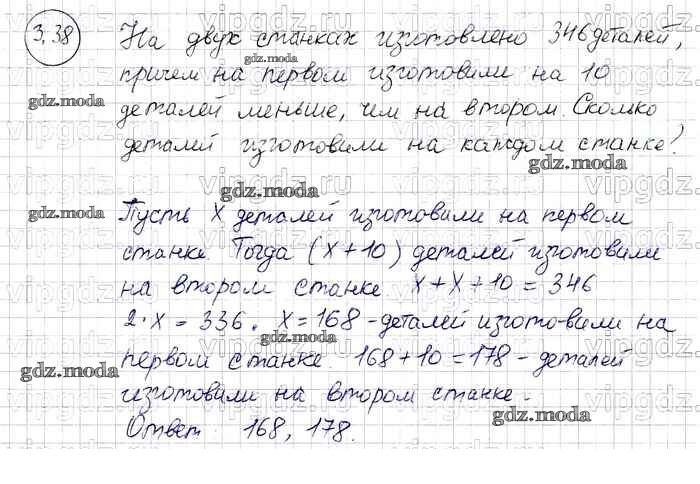 3.38 На двух станках изготовлено 346 деталей,
причем на первом изготовили на 10
деталей меньше, чем на втором. Сколко
деталей изготовили на каждом станке?
Пусть X деталей изготовили на первом
станке. Тогда (X+10) деталей изготовили
на втором станке. X+X+10=346
2·X=336. X=168 - деталей изготовили на
первом станке. 168+10=178 - деталей
изготовили на втором станке.
Ответ 168, 178.
gdz.moda
gdz.moda
gdz.moda
gdz.moda
gdz.moda
gdz.moda
gdz.moda
gdz.moda
vipgdz.ru